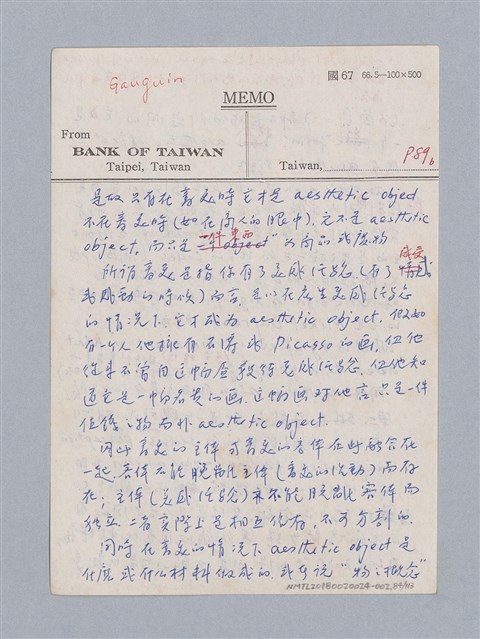 Gauguin
國 67 66.5—100×500
MEMO
From
BANK OF TAIWAN
Taipei, Taiwan
Taiwan,
P89b
是故只有在審美時它才是 aesthetic object
不在審美時(如在商人的眼中),它不是 aesthetic
object, 而只是一件東西 object" 為商品或廢物.
所謂審美是指你有了美感活動(有了情感 感受
或感動的時候)而言, 是以在產生美感活動
的情況下,它才成為 aesthetic object. 假如
有一個人他擁有不少 Picasso 的畫,但他
從未不曾因這幅畫獲得美感活動,但他知
道它是一幅名貴的畫.這幅畫對他言只是一件
值錢之物而非 aesthetic object.
因此審美的主體與審美的客體在此融合在
一起.客體不能脫離主體(審美的活動)而存
在;主體(美感活動)亦不能脫離客體而
獨立.二者實際上是相互依存,不可分割的.
同時在審美的情況下 aesthetic object 是
什麼或什么材料做成的.我在說"物之概念"
NMTL20180020024-002.89/113